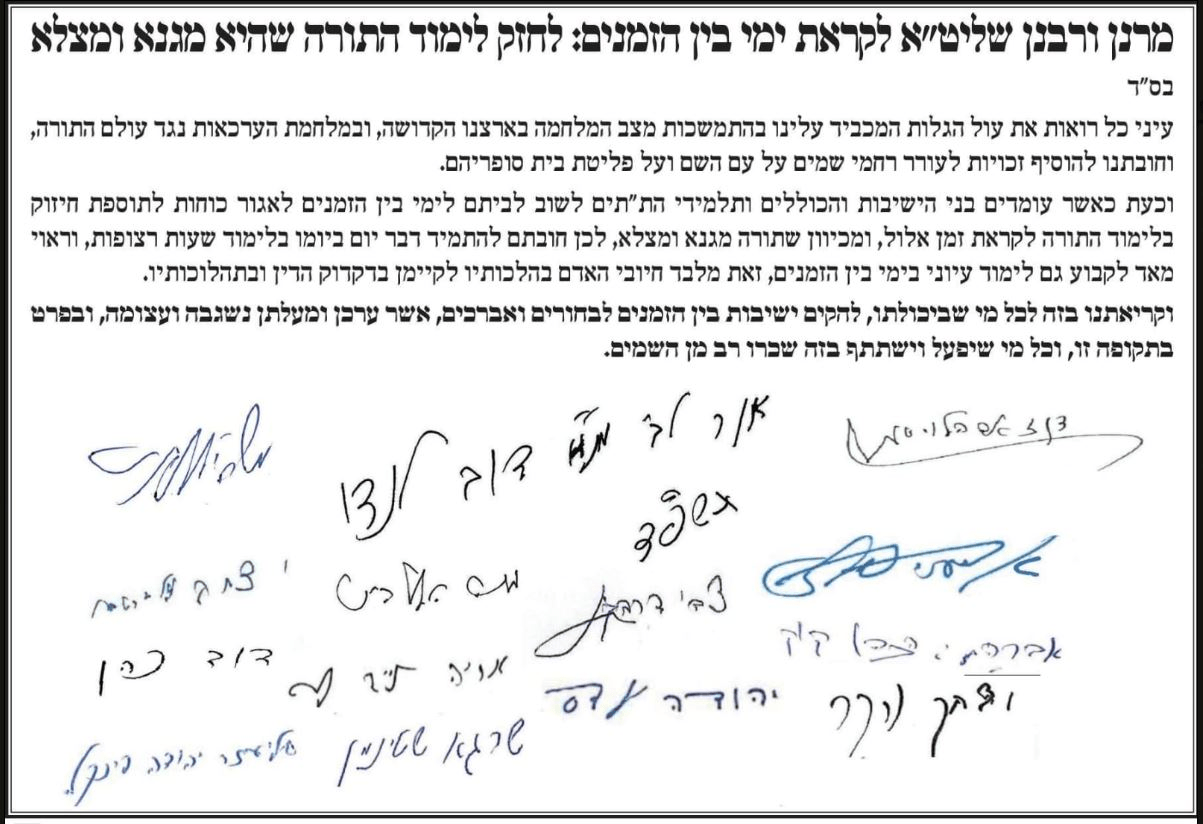 מרנן ורבנן שליט"א לקראת ימי בין הזמנים: לחזק לימוד התורה שהיא מגנא ומצלא
בס"ד
עיני כל רואות את עול הגלות המכביד עלינו בהתמשכות מצב המלחמה בארצנו הקדושה, ובמלחמת הערכאות נגד עולם התורה,
וחובתנו להוסיף זכויות לעורר רחמי שמים על עם השם ועל פליטת בית סופריהם.
וכעת כאשר עומדים בני הישיבות והכוללים ותלמידי הת"תים לשוב לביתם לימי בין הזמנים לאגור כוחות לתוספת חיזוק
בלימוד התורה לקראת זמן אלול, ומכיוון שתורה מגנא ומצלא, לכן חובתם להתמיד דבר יום ביומו בלימוד שעות רצופות, וראוי
מאד לקבוע גם לימוד עיוני בימי בין הזמנים, זאת מלבד חיובי האדם בהלכותיו לקיימן בדקדוק הדין ובתהלוכותיו.
וקריאתנו בזה לכל מי שביכולתו, להקים ישיבות בין הזמנים לבחורים ואברכים, אשר ערכן ומעלתן נשגבה ועצומה, ובפרט
בתקופה זו, וכל מי שיפעל וישתתף בזה שכרו רב מן השמים.
אור לב' דוב לנדו
תשפ"ד
צבי
יצחק
אברהם
דוב כהן
אריה
יהודה עדס
שרגא שטינמן
אליעזר יהודה פינקל